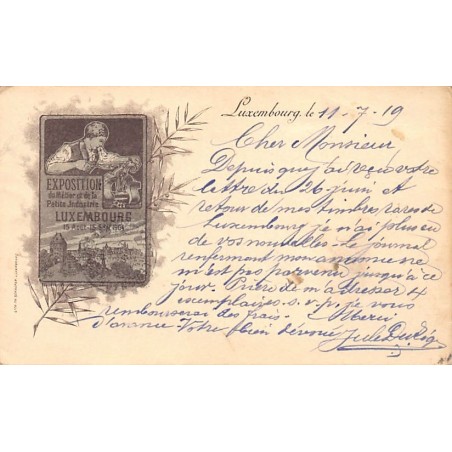 Luxembourg, le 11-7-19
Cher Monsieur
Depuis que j'ai reçu votre
lettre du 26 juin et
retour de mes timbres rares de
Luxembourg je n'ai plus eu
de vos nouvelles. Le journal
renfermant mon annonce ne
m'est pas parvenu jusqu'à ce
jour. Prière de m'adresser 4
exemplaires s.v.p. je vous
rembourserai des frais. Merci
d'avance. Votre bien dévoué Jules
EXPOSITION
du Métier et de la
Petite Industrie
LUXEMBOURG
15 AOUT-15 1904